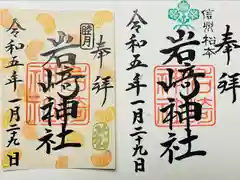 奉拝
睦月
岩﨑神社
令和五年一月二十九日
奉拝
信州松本
岩﨑神社
令和五年一月二十九日